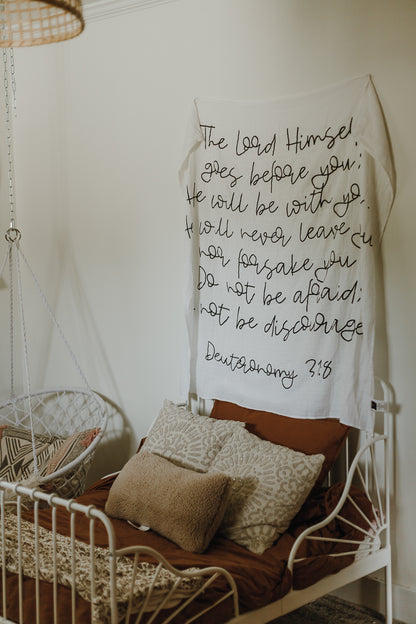 The Lord Himsel
goes before you;
He will be with yo
He will never leave you
nor forsake you
Do not be afraid;
not be discourage
Deuteronomy 3:8